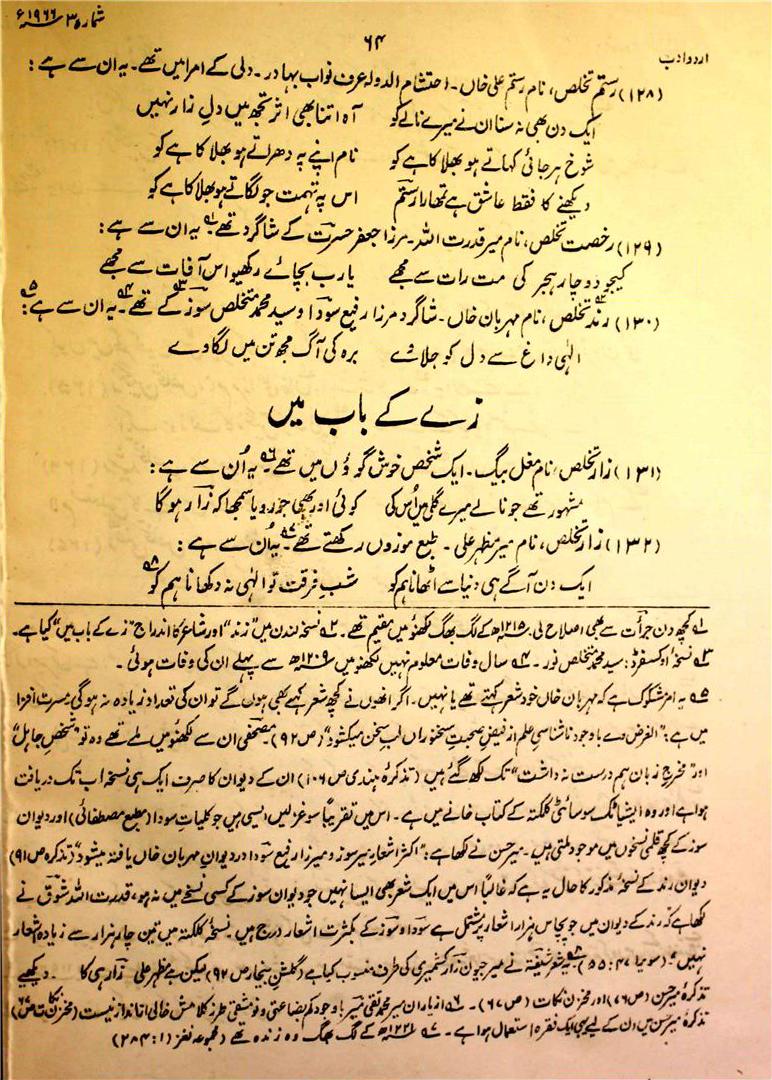 شمارہ ۳ ۱۹۶۶ء
۶۴
اردو ادب
(۱۲۸) رستم تخلص، نام رستم علی خاں۔ احتشام الدولہ عرف نواب بہادر۔ دلی کے امرا میں تھے۔ یہ ان سے ہے:
ایک دن بھی نہ سنا ان نے میرے نالے کو آہ اتنا بھی اثر تجھ میں دلِ زار نہیں
شوخ ہرجائی کہاتے ہو بھلا کاہے کو نام اپنے پہ دھراتے ہو بھلا کاہے کو
دیکھنے کا فقط عاشق ہے تمھارا رستم اس پہ تہمت جو لگاتے ہو بھلا کاہے کو
(۱۲۹) رخصت تخلص، نام میر قدرت اللہ۔ مرزا جعفر حسرت کے شاگرد تھے۱۔ یہ ان سے ہے:
کیجو دو چار ہجر کی مت رات سے مجھے یارب بچائے رکھیو اس آفات سے مجھے
(۱۳۰) رند۲ تخلص، نام مہربان خاں۔ شاگرد مرزا رفیع سودا و سید محمد متخلص سوز۳ کے تھے۴۔ یہ ان سے ہے۵:
الٰہی داغ سے دل کو جلاے برہ کی آگ مجھ تن میں لگاوے
زے کے باب میں
(۱۳۱) زار تخلص، نام مغل بیگ۔ ایک شخص خوش گوؤں میں تھے۶۔ یہ اُن سے ہے:
مشہور تھے جو نالے میرے گلی میں اُس کی کوئی اور بھی جو رویا سمجھا کہ زار ہوگا
(۱۳۲) زار تخلص، نام میر مظہر علی۔ طبع موزوں رکھتے تھے۷۔ یہ اُن سے ہے:
ایک دن آگے ہی دنیا سے اٹھانا ہم کو شبِ فرقت تو الٰہی نہ دکھانا ہم کو۸
۱ کچھ دن جرأت سے بھی اصلاح لی۔ ۱۲۱۵ھ کے لگ بھگ لکھنؤ میں مقیم تھے۔ ۲ نسخہ لندن میں "زند" اور شاعر کا اندراج "زے کے باب میں" کیا ہے۔
۳ نسخۂ اوکسفرڈ: سید محمد متخلص نور۔ ۴ سال وفات معلوم نہیں لکھنؤ میں ۱۲۰۹ھ سے پہلے ان کی وفات ہوئی۔
۵ یہ امر مشکوک ہے کہ مہربان خاں خود شعر کہتے تھے یا نہیں۔ اگر انھوں نے کچھ شعر کہے بھی ہوں گے تو ان کی تعداد زیادہ نہ ہوگی۔ مسرت افزا
میں ہے: "الغرض وے باوجود ناشناسیِ علم از فیضِ صحبتِ سخنوراں لب سخن میکشود" (ص ۹۲)۔ مصحفی ان سے لکھنؤ میں ملے تھے وہ تو "شخصِ جاہل"
اور "مخرجِ زبان ہم درست نہ داشت" تک لکھ گئے ہیں (تذکرۂ ہندی ص ۱۰۶) ان کے دیوان کا صرف ایک ہی نسخہ اب تک دریافت
ہوا ہے اور وہ ایشیاٹک سوسائٹی کلکتہ کے کتاب خانے میں ہے۔ اس میں تقریباً سو غزلیں ایسی ہیں جو کلیاتِ سودا (مطبع مصطفائی) اور دیوان
سوز کے کچھ قلمی نسخوں میں موجود ملتی ہیں۔ میر حسن نے لکھا ہے: "اکثر اشعارِ میر سوز و میرزا رفیع سودا در دیوانِ مہربان خاں یافتہ میشود" (تذکرہ ص ۹۱)
دیوان رند کے نسخۂ مذکور کا حال یہ ہے کہ غالباً اس میں ایک شعر بھی ایسا نہیں جو دیوان سوز کے کسی نسخے میں نہ ہو، قدرت اللہ شوق نے
لکھا ہے کہ رند کے دیوان میں جو پچاس ہزار اشعار پر مشتمل ہے سودا و سوز کے بکثرت اشعار درج ہیں۔ نسخۂ کلکتہ میں تین چار ہزار سے زیادہ اشعار
نہیں" (سویرا ۴۷: ۵۵)۔ ۸ یہ شعر شیفتہ نے میر جیون زار کشمیری کی طرف منسوب کیا ہے (گلشن بیخار ص ۹۲) لیکن ہے مظہر علی زار ہی کا۔ دیکھیے
تذکرۂ میر حسن (ص ۷۶) اور مخزن نکات (ص ۶۷)۔ ۶ از یاران میر محمد تقی میر باوجود کم بضاعتی و نو مشقی طرز کلامش خالی از انداز نیست (مخزن نکات ص ۶۵)
تذکرۂ میر حسن میں ان کے لیے یہی ایک فقرہ استعمال ہوا ہے۔ ۷ ۱۲۲۱ھ کے لگ بھگ وہ زندہ تھے (مجموعہ نغز ۱: ۲۸۴)